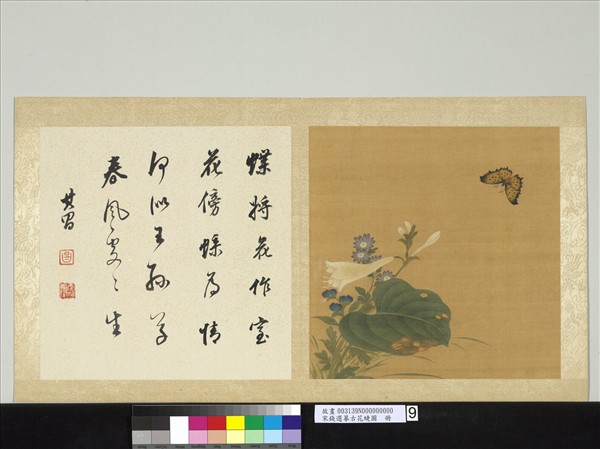 蝶將花作室
花傍蝶為情
何似王孫草
春風處〻生
其昌
故畫 003139N000000000
宋錢選摹古花蜨圖 冊
9